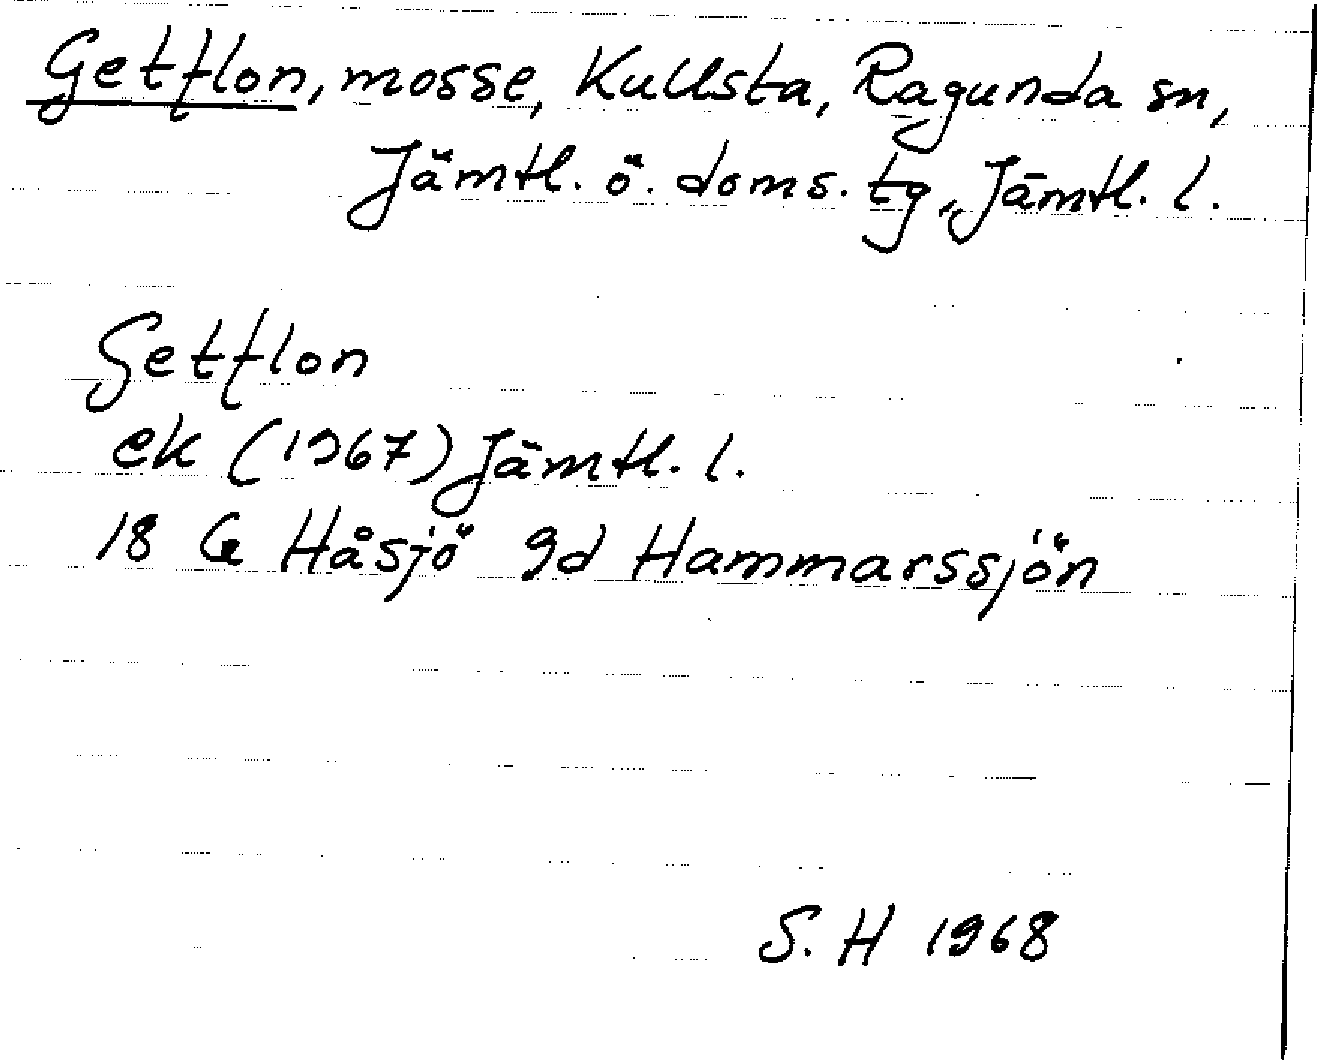 Getflon, mosse, Kullsta, Ragunda sn,
Jämtl. ö. doms. tg, Jämtl. l.
Getflon
ek (1967) Jämtl. l.
18 G Håsjö 9d Hammarssjön
S. H 1968